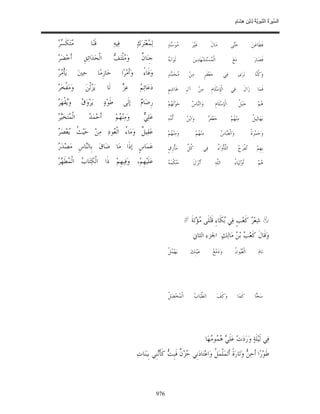 السِّيرَةُ النَّبَوِيَّةُ لِابْنِ هِشَامٍ
فَطَاعَنَ حَتَّى مَالَ غَيْرَ مُوَسَّدٍ بِمُعْتَرَكٍ فِيهِ قَنًا مُتَكَسِّرُ
فَصَارَ مَعَ الْمُسْتَشْهَدِينَ ثَوَابُهُ جِنَانٌ وَمُلْتَفُّ الْحَدَائِقِ أَخْضَرُ
وَكُنَّا نَرَى فِي جَعْفَرٍ مِنْ مُحَمَّدٍ وَفَاءً وَأَمْرًا حَازِمًا حِينَ يَأْمُرُ
فَمَا زَالَ فِي الْإِسْلَامِ مِنْ آلِ هَاشِمٍ دَعَائِمُ عِزٍّ لَا يَزُلْنَ وَمَفْخَرُ
هُمُ جَبَلُ الْإِسْلَامِ وَالنَّاسُ حَوْلَهُمْ رِضَامٌ إِلَى طَوْدٍ يَرُوقُ وَيُقْهَرُ
بَهَالِيلُ مِنْهُمْ جَعْفَرٌ وَابْنُ أُمِّهِ عَلِيٌّ وَمِنْهُمْ أَحْمَدُ الْمُتَخَيَّرُ
وَحَمْزَةُ وَالْعَبَّاسُ مِنْهُمْ وَمِنْهُمُ عَقِيلٌ وَمَاءُ الْعُودِ مِنْ حَيْثُ يُعْصَرُ
بِهِمْ تُفْرَجُ اللَّأْوَاءُ فِي كُلِّ مَأْزِقٍ عَمَاسٍ إِذَا مَا ضَاقَ بِالنَّاسِ مَصْدَرُ
هُمُ أَوْلِيَاءُ اللَّهِ أَنْزَلَ حُكْمَهُ عَلَيْهِمْ، وَفِيهِمْ ذَا الْكِتَابُ الْمُطَهَّرُ
شِعْرُ كَعْبٍ فِي بُكَاءِ قَتْلَى مُؤْتَةَ
وَقَالَ كَعْبُ بْنُ مَالِكٍ: الجزء الثاني
نَامَ الْعُيُونُ وَدَمْعُ عَيْنِكَ يَهْمُلُ
سَحًّا كَمَا وَكَفَ الطَّبَابُ الْمُخْضَلُ
فِي لَيْلَةٍ وَرَدَتْ عَلَيَّ هُمُومُهَا
طَوْرًا أَحِنُّ وَتَارَةً أَتَمَلْمَلُ وَاعْتَادَنِي حُزْنٌ فَبِتُّ كَأَنَّنِي بِبَنَاتِ
976